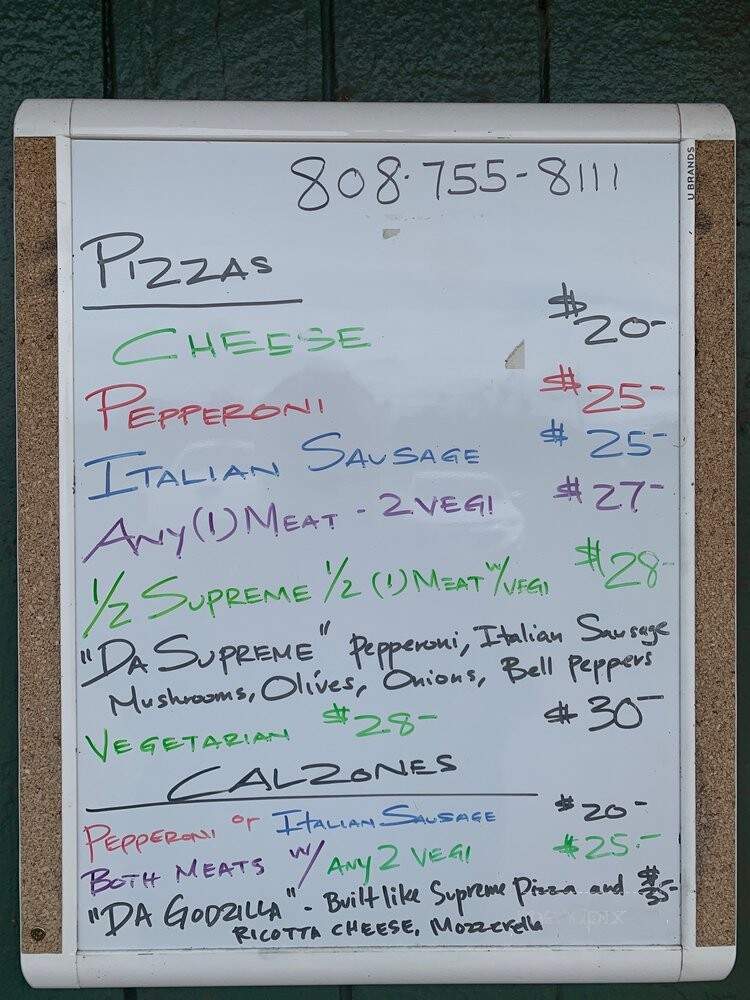 808-755-8111
U BRANDS
PIZZAS
CHEESE $20-
PEPPERONI $25-
ITALIAN SAUSAGE $25-
ANY (1) MEAT - 2 VEGI $27-
1/2 SUPREME 1/2 (1) MEAT w/VEGI $28-
"DA SUPREME" Pepperoni, Italian Sausage
Mushrooms, Olives, Onions, Bell Peppers
VEGETARIAN $28- $30-
CALZONES
PEPPERONI or ITALIAN SAUSAGE $20-
BOTH MEATS w/ ANY 2 VEGI $25.-
"DA GODZILLA" - Built like Supreme Pizza and
RICOTTA CHEESE, Mozzerella